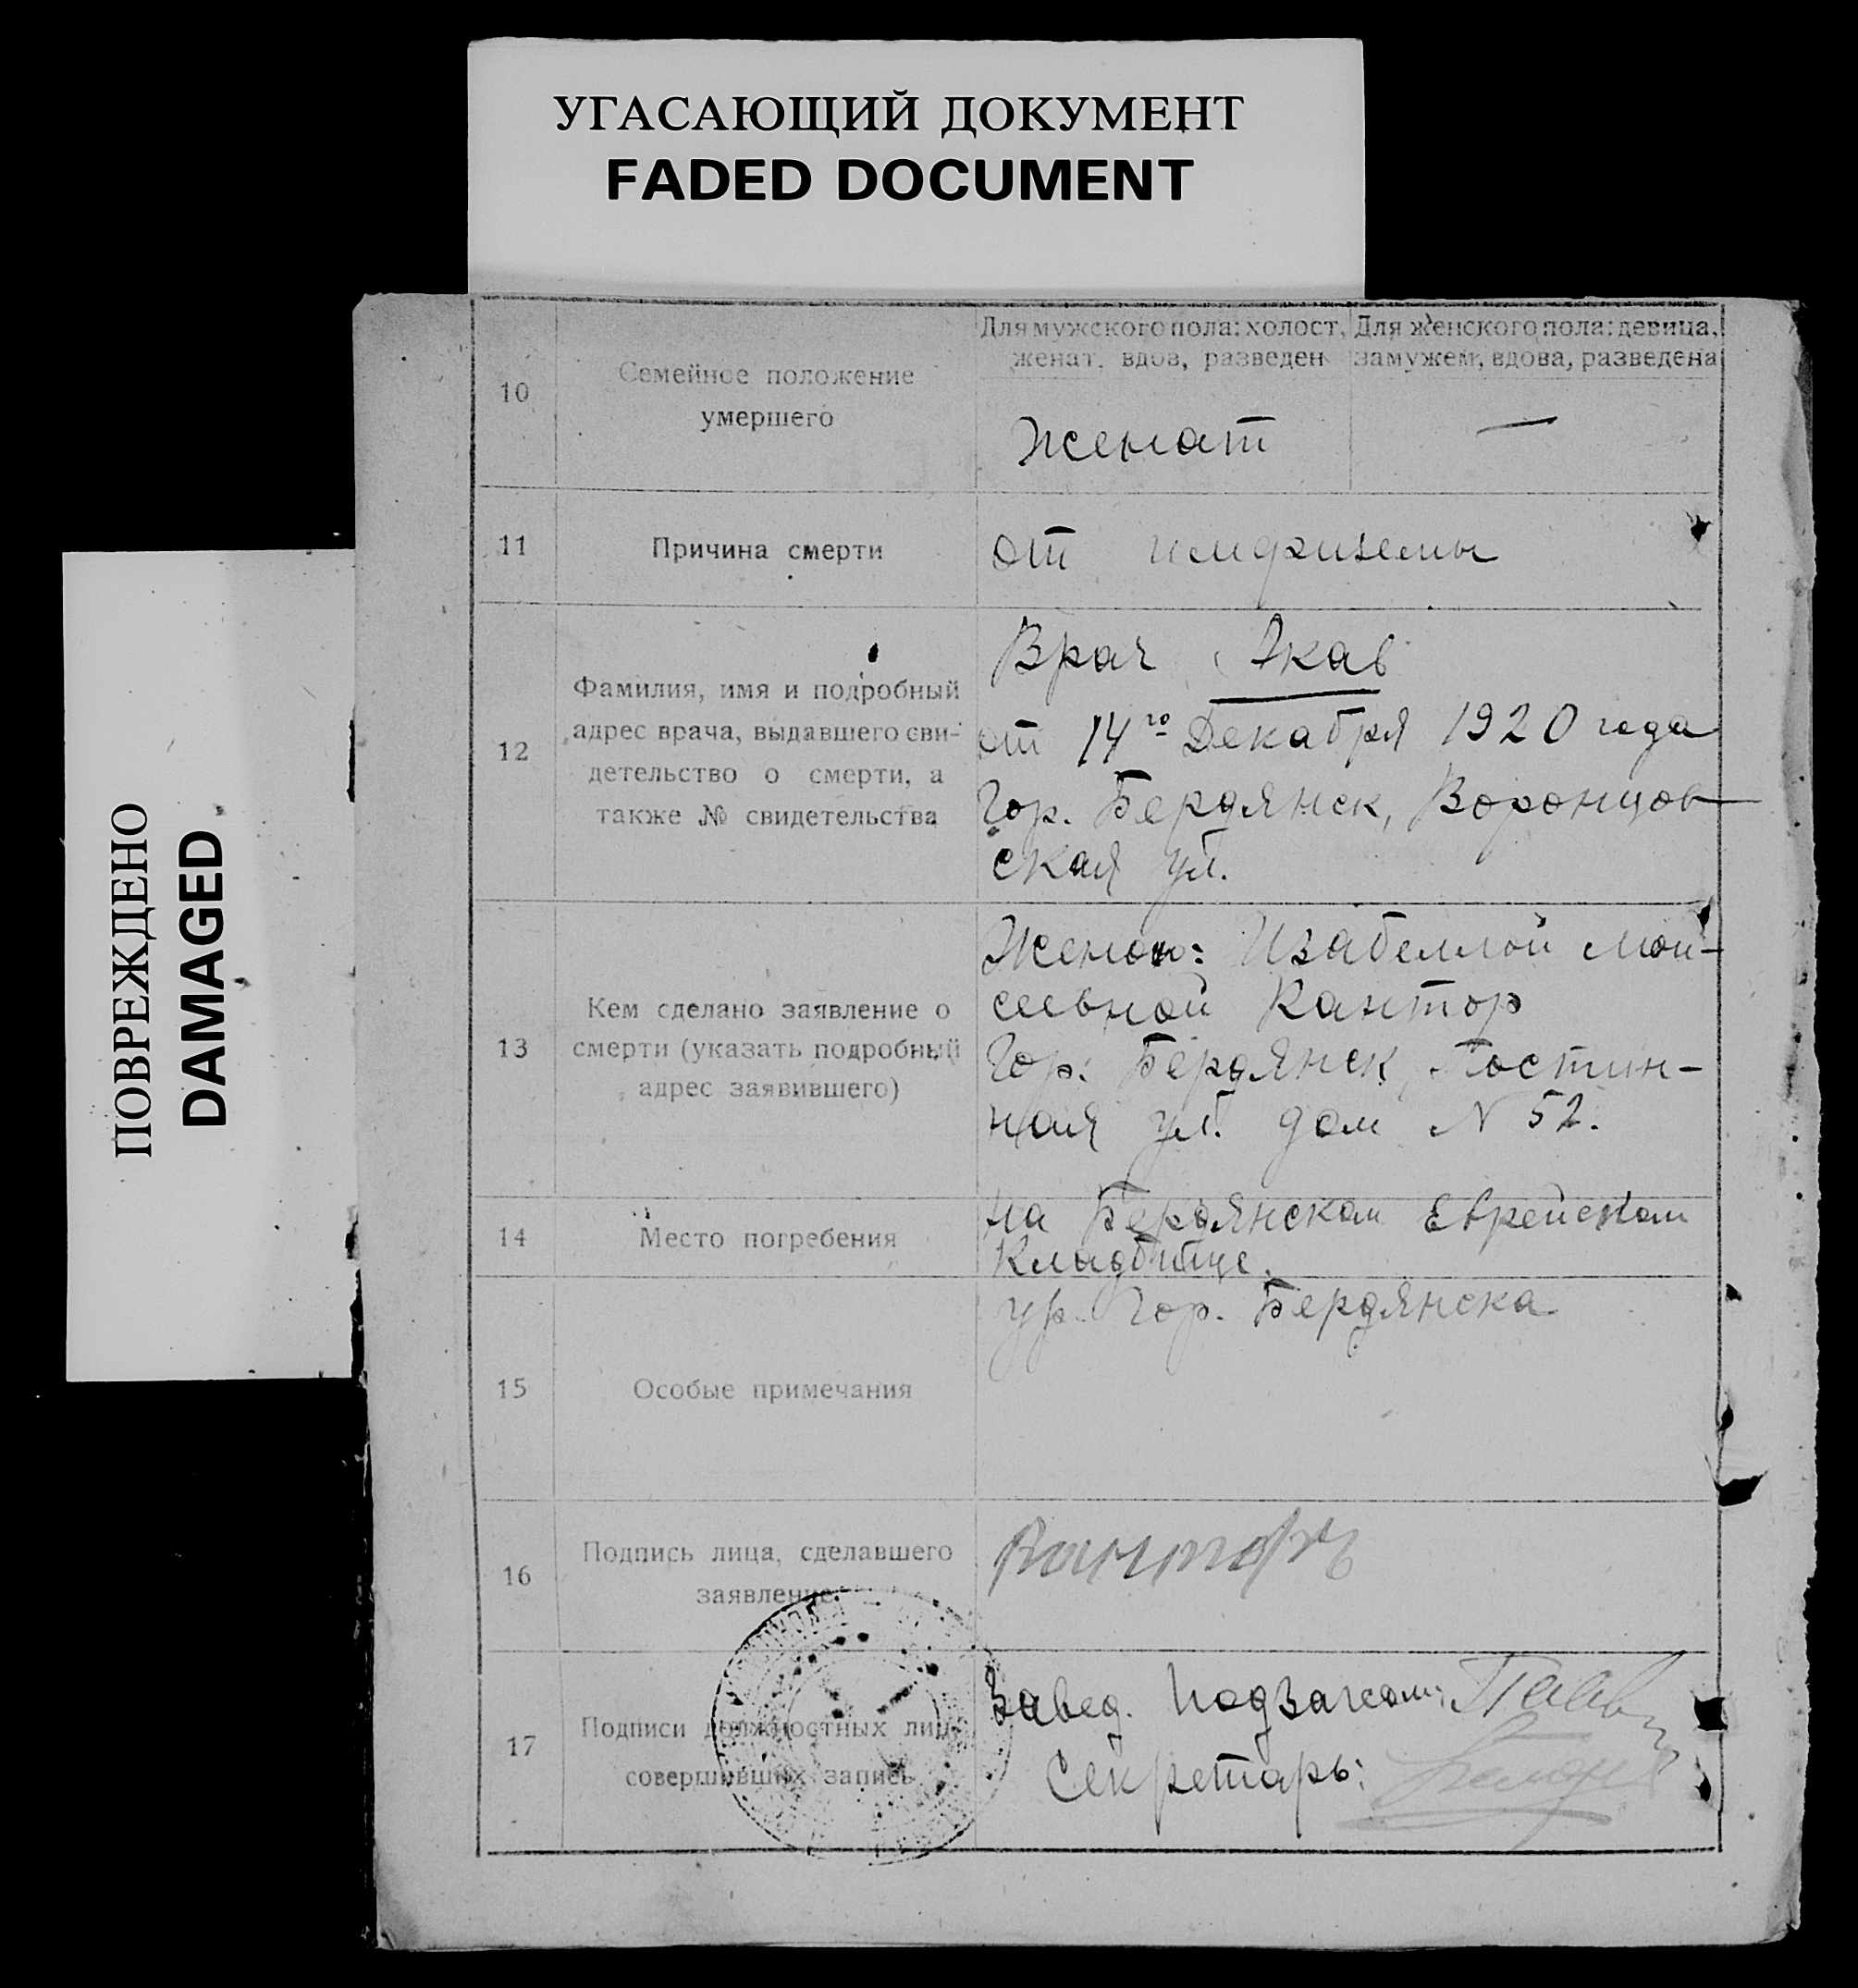 УГАСАЮЩИЙ ДОКУМЕНТ
FADED DOCUMENT
ПОВРЕЖДЕНО
DAMAGED
10
Семейное положение
умершего
Для мужского пола: холост,
женат, вдов, разведен
Для женского пола: девица,
замужем, вдова, разведена
Женат
—
11
Причина смерти
от
12
Фамилия, имя и подробный
адрес врача, выдавшего сви-
детельство о смерти, а
также № свидетельства
Врач
от 14го Декабря 1920 года
Гор. Бердянск, Воронцов-
ская ул.
13
Кем сделано заявление о
смерти (указать подробный
адрес заявившего)
Женой: Изабеллой Мои-
сеевной Кантор
Гор. Бердянск, Гостин-
ная ул. дом N 52.
14
Место погребения
на Бердянском Еврейском
Кладбище.
15
Особые примечания
ур. гор. Бердянска
16
Подпись лица, сделавшего
заявление
Канторъ
17
Подписи должностных лиц,
совершивших запись
Завед. Подзагсом:
Секретарь: